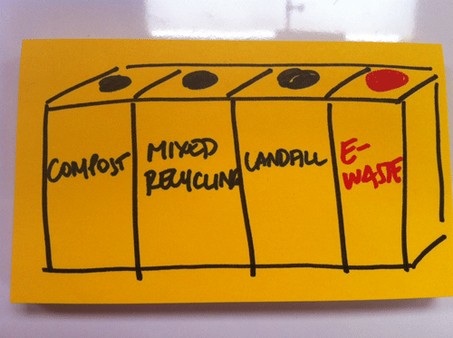 COMPOST
MIXED
RECYCLING
LANDFILL
E-
WASTE